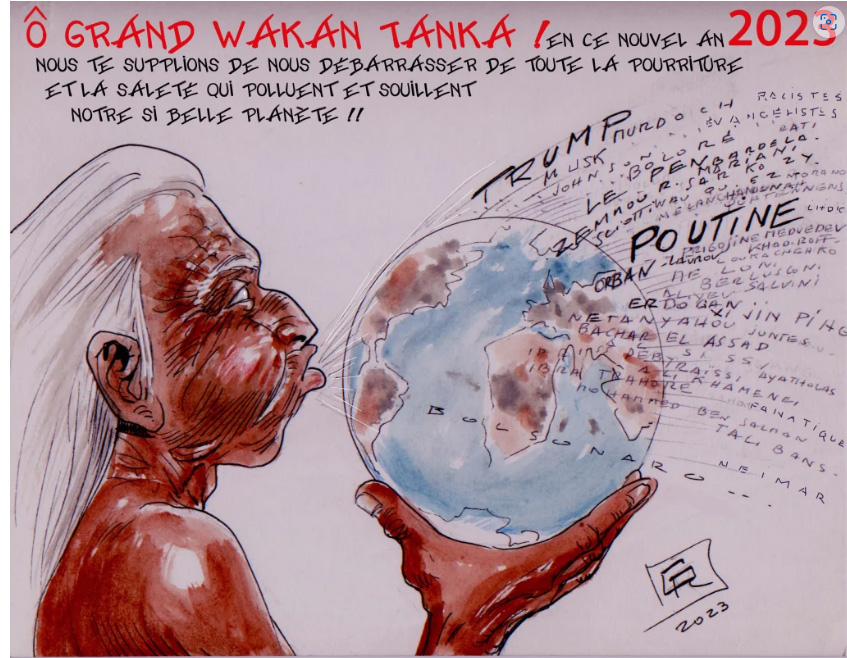 Ô GRAND WAKAN TANKA ! EN CE NOUVEL AN 2023
NOUS TE SUPPLIONS DE NOUS DÉBARRASSER DE TOUTE LA POURRITURE
ET LA SALETÉ QUI POLLUENT ET SOUILLENT
NOTRE SI BELLE PLANÈTE !!
RACISTES
TRUMP MURDOCH ÉVANGÉLISTES
MUSK
JOHNSON BOLORÉ
LE PEN BARDELA
ZEMMOUR SARKOZY
MARIANI
CIOTTI WAUQUIEZ
MELANCHON
POUTINE
PRIGOJINE MEDVEDEV
LOUKACHENKO
ORBAN MELONI
BERLUSCONI
ALIYEV SALVINI
ERDOGAN
XI JIN PING
NETANYAHOU JUNTES
BACHAR EL ASSAD
AL SISSI
DEBY RAISSI AYATHOLAS
ALI KHAMENEI
IBRA TRAHORE
MOHAMMED BEN SALMAN
FANATIQUE
TALIBANS
BOLSONARO
NEIMAR
2023